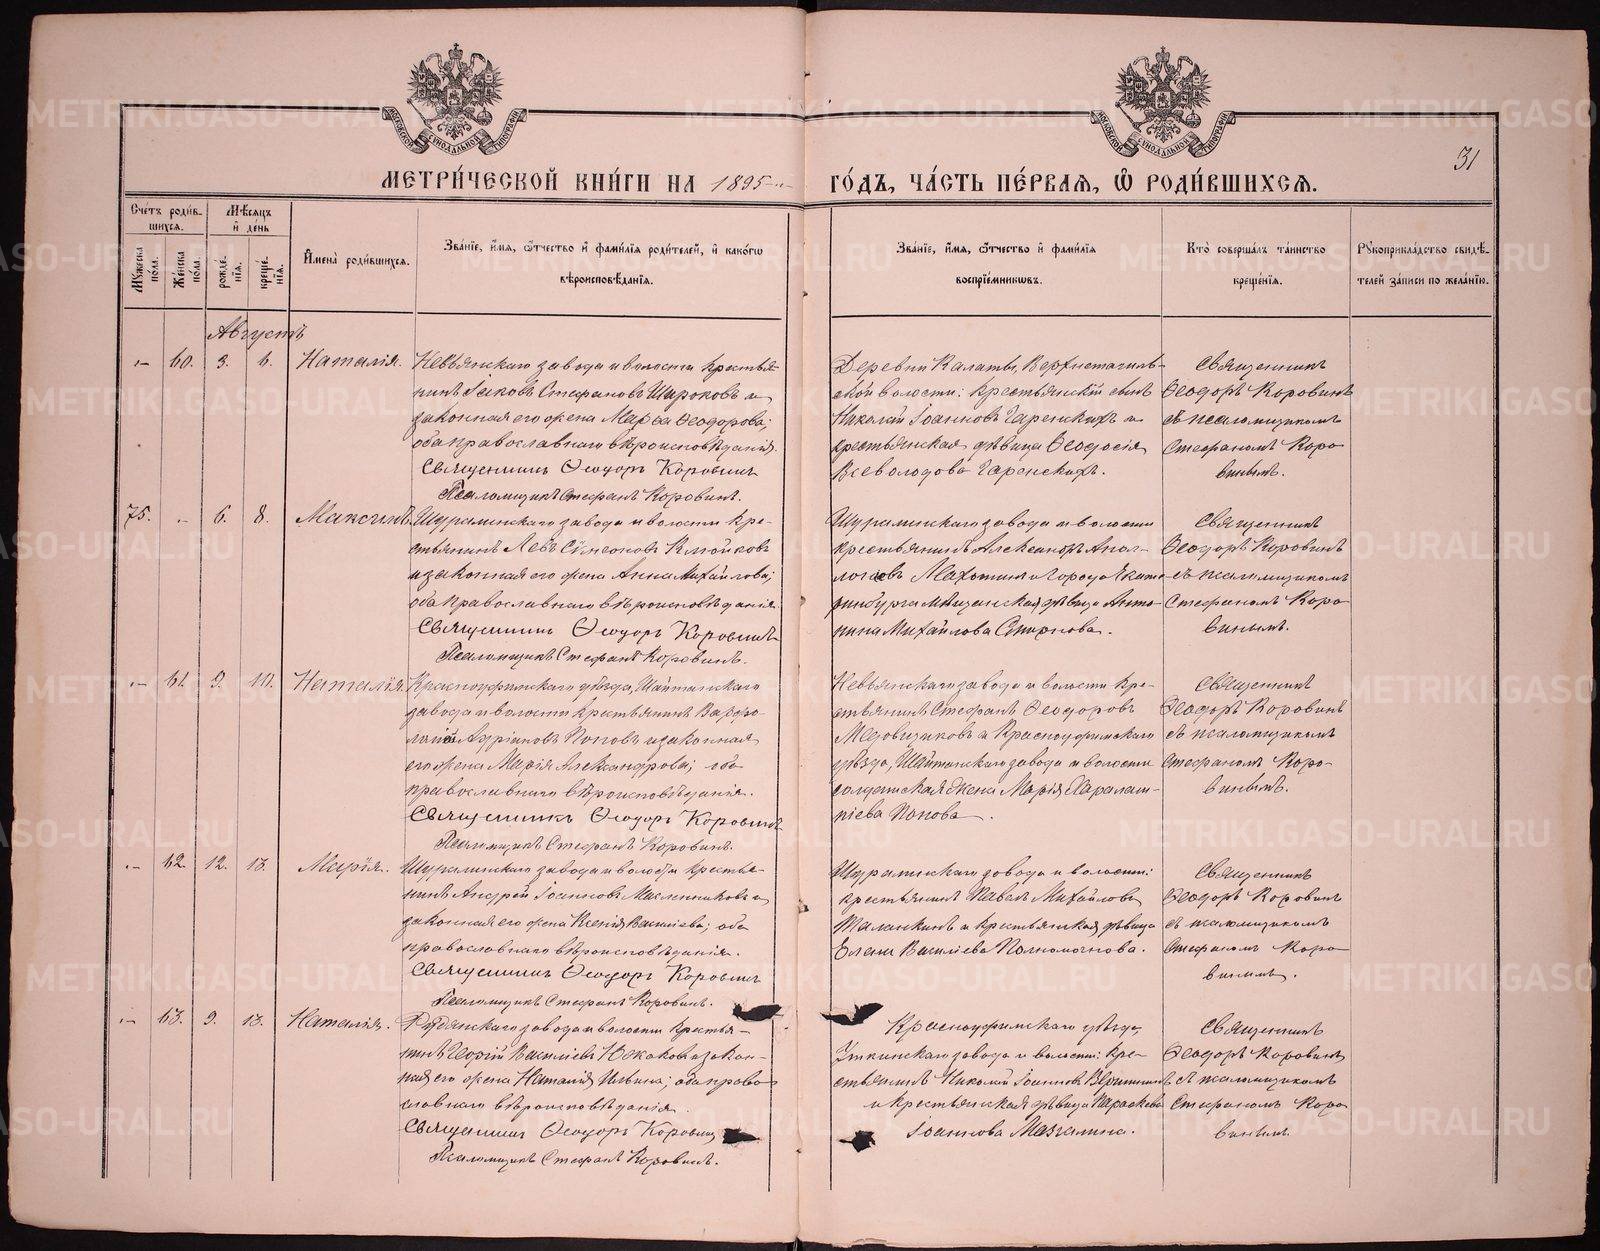 МЕТРИ́ЧЕСКОЙ КНИ́ГИ НА 1895
ГО́ДЪ, ЧА́СТЬ ПЕ́РВАЯ, Ѿ РОДИ́ВШИХСЯ.
31
Сче́тъ роди́вшихся.
Му́жеска по́ла.
Же́нска по́ла.
Мѣ́сяцъ и҆ де́нь
рожде́нїя.
креще́нїя.
И҆мена̀ роди́вшихся.
Зва́нїе, и҆́мя, ѻ҆́тчество и҆ фами́лїя роди́телей, и҆ како́гѡ
вѣроисповѣ́данїя.
Зва́нїе, и҆́мя, ѻ҆́тчество и҆ фами́лїя
воспрїе́мникѡвъ.
Кто̀ соверша́лъ та́инство
креще́нїя.
Рꙋкоприкла́дство свидѣ́-
телей за́писи по жела́нїю.
Августъ
60. 3. 6. Наталія.
Невьянскаго завода и волости крестья-
нинъ Іаковъ Стефановъ Широковъ и
законная его жена Марѳа Ѳеодорова;
оба православнаго вѣроисповѣданія.
Священникъ Ѳеодоръ Коровинъ
Псаломщикъ Стефанъ Коровинъ.
Деревни Калаты, Верхнетагиль-
ской волости: крестьянскій сынъ
Николай Іоанновъ Гаренскихъ и
крестьянская дѣвица Ѳеодосія
Всеволодова Гаренскихъ.
Священникъ
Ѳеодоръ Коровинъ
съ псаломщикомъ
Стефаномъ Коро
винымъ.
75. 6. 8. Максимъ.
Шуралинскаго завода и волости кре-
стьянинъ Левъ Сѵмеоновъ Клюйковъ
и законная его жена Анна Михайлова;
оба православнаго вѣроисповѣданія
Священникъ Ѳеодоръ Коровинъ
Псаломщикъ Стефанъ Коровинъ.
Шуралинскаго завода и волости
крестьянинъ Александръ Апол-
логовъ Махотинъ и города Екате-
ринбурга мѣщанская дѣвица Анто-
нина Михайлова Смирнова.
Священникъ
Ѳеодоръ Коровинъ
съ псаломщикомъ
Стефаномъ Коро
винымъ.
61. 9. 10. Наталія.
Красноуфимскаго уѣзда, Шайтанскаго
завода и волости крестьянинъ Варфо-
ломей Адріановъ Поповъ и законная
его жена Марія Александрова; оба
православнаго вѣроисповѣданія.
Священникъ Ѳеодоръ Коровинъ
Псаломщикъ Стефанъ Коровинъ.
Невьянскаго завода и волости кре-
стьянинъ Стефанъ Ѳеодоровъ
Медовщиковъ и Красноуфимскаго
уѣзда, Шайтанскаго завода и волости
солдатская жена Марія Харалам-
піева Попова.
Священникъ
Ѳеодоръ Коровинъ
съ псаломщикомъ
Стефаномъ Коро-
винымъ.
62. 12. 13. Марія.
Шуралинскаго завода и волости крестья-
нинъ Андрей Іоанновъ Масленниковъ и
законная его жена Ксенія Васильева; оба
православнаго вѣроисповѣданія.
Священникъ Ѳеодоръ Коровинъ
Псаломщикъ Стефанъ Коровинъ.
Шуралинскаго завода и волости:
крестьянинъ Павелъ Михайловъ
Таланкинъ и крестьянская дѣвица
Елена Васильева Полномочнова.
Священникъ
Ѳеодоръ Коровинъ
съ псаломщикомъ
Стефаномъ Коро-
винымъ.
63. 9. 13. Наталія.
Рудянскаго завода и волости крестья-
нинъ Георгій Васильевъ Южаковъ и закон-
ная его жена Наталія Ильина; оба право-
славнаго вѣроисповѣданія.
Священникъ Ѳеодоръ Коровинъ
Псаломщикъ Стефанъ Коровинъ.
Красноуфимскаго уѣзда,
Уткинскаго завода и волости: кре-
стьянинъ Николай Іоанновъ
и крестьянская дѣвица Параскева
Іоаннова Мазгалина.
Священникъ
Ѳеодоръ Коровинъ
съ псаломщикомъ
Стефаномъ Коро
винымъ.
METRIKI.GASO-URAL.RU